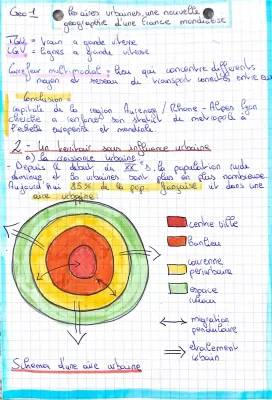 Geo 1
Les aires urbaines, une nouvelle
géographie d'une France mondialisée
TGV = train a grande vitesse
LGV = lignes a grande vitesse
Carrefour multimodal : lieu qui concentre différents
moyen et reseau de transport
Conclusion :
capitale de la region Auvergne / Rhone - Alpes, Lyon
cherche a renforcer son statut de metropole a
l'echelle européenne et mondiale.
2 - Un territoire sous influence urbaine
a) la croissance urbaine
- Depuis le debut du XXe s, la population rurale
diminue et la urbaines sont plus en plus nombreuse.
Aujourd'hui 85% de la pop. française vit dans une
aire urbaine
centre ville
banlieu
couronne
periurbaine
espace
rural
migration
pendulaire
etalement
urbain
Schema d'une aire urbaine